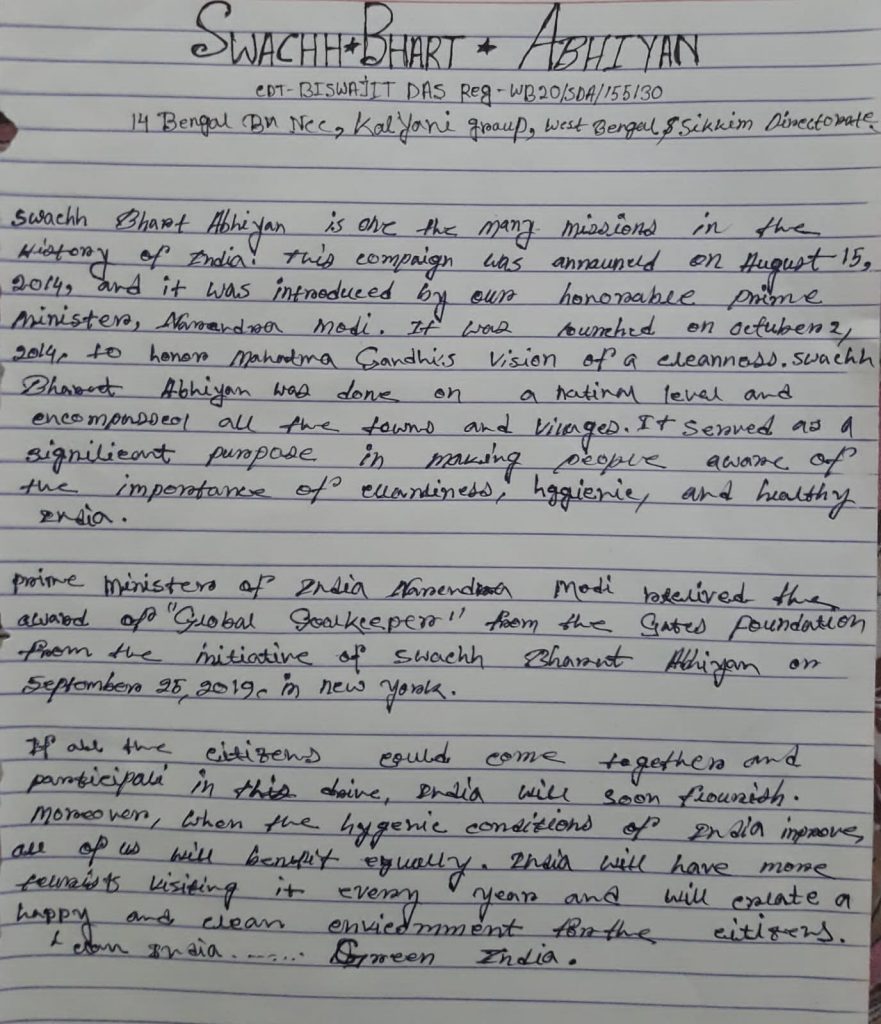 SWACHH★BHART★ABHIYAN
CDT-BISWAJIT DAS Reg-WB20/SDA/155130
14 Bengal Bn Ncc, Kalyani group, West Bengal & Sikkim Directorate.
Swachh Bharat Abhiyan is one the many missions in the
History of India! This compaign was announed on August 15,
2014, and it was introduced by our honorable prime
minister, Narendra modi. It was lounched on october 2,
2014, to honor Mahatma Gandhi's vision of a cleanness. swachh
Bharat Abhiyan was done on a natinal level and
encompassed all the towns and villages. It served as a
significant purpose in making people aware of
the importance of cleanliness, hygienie, and healthy
India.
prime minister of India Narendra Modi received the
award of "Global Goalkeeper" from the Gates foundation
from the initiative of swachh Bharat Abhiyan on
September 25, 2019. in new york.
If all the citizens could come together and
participate in this drive, India will soon flourish.
Moreover, when the hygenic conditions of India improve,
all of us will benefit equally. India will have more
tourists visiting it every year and will create a
happy and clean enviernment for the citizens.
clean India....... Green India.